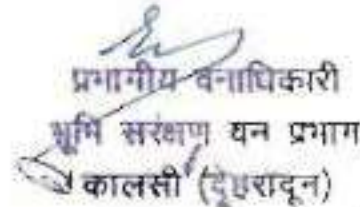 प्रभागीय वनाधिकारी
भूमि सरंक्षण वन प्रभाग
कालसी (देहरादून)